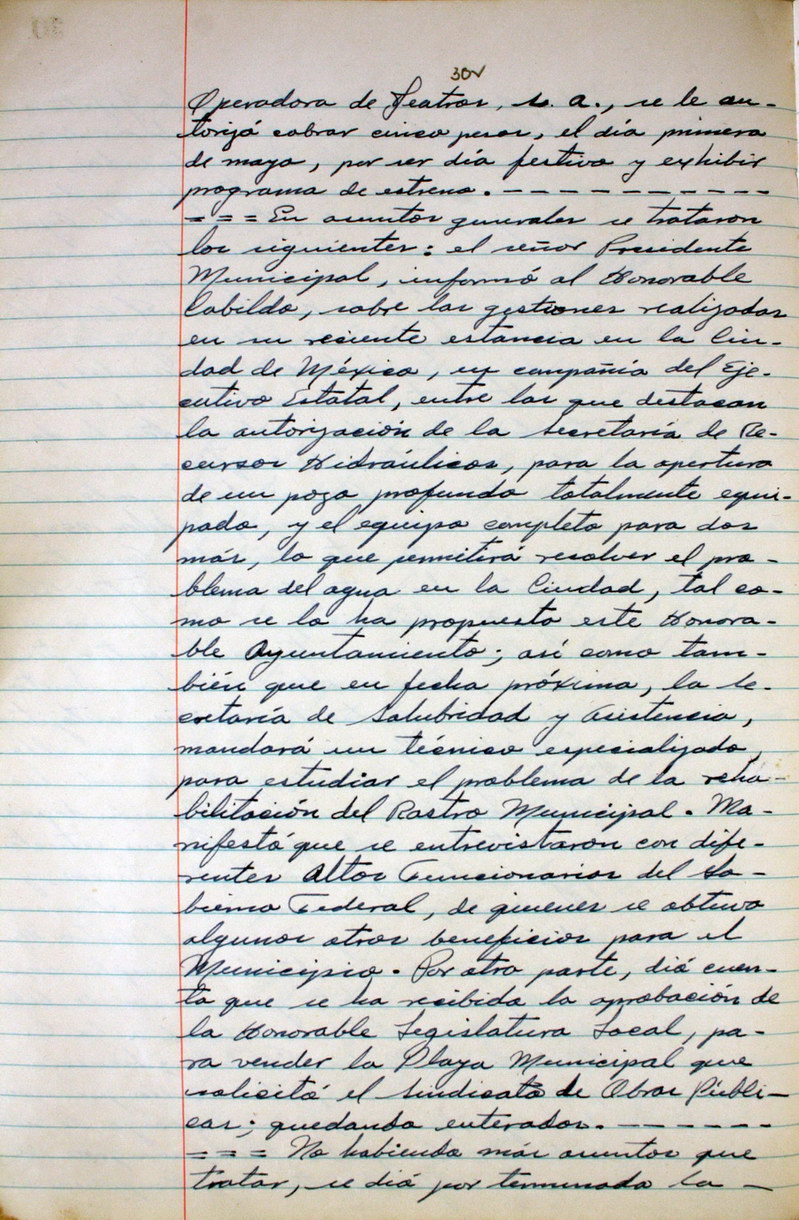 30v
Operadora de Teatros, s. a., se le au-
torizó cobrar cinco pesos, el día primero
de mayo, por ser día festivo y exhibir
programa de estreno. - - - - - - - - - -
= = = En asuntos generales se trataron
los siguientes: el señor Presidente
Municipal, informó al Honorable
Cabildo, sobre las gestiones realizadas
en su reciente estancia en la Ciu-
dad de México, en compañía del Eje-
cutivo Estatal, entre las que destacan
la autorización de la Secretaría de Re-
cursos Hidráulicos, para la apertura
de un pozo profundo totalmente equi-
pado, y el equipo completo para dos
más, lo que permitirá resolver el pro-
blema del agua en la Ciudad, tal co-
mo se lo ha propuesto este Honora-
ble Ayuntamiento; así como tam-
bién que en fecha próxima, la Se-
cretaría de Salubridad y Asistencia,
mandará un técnico especializado,
para estudiar el problema de la reha-
bilitación del Rastro Municipal. Ma-
nifestó que se entrevistaron con dife-
rentes Altos Funcionarios del Go-
bierno Federal, de quienes se obtuvo
algunos otros beneficios para el
Municipio. Por otra parte, dió cuen-
ta que se ha recibido la aprobación de
la Honorable Legislatura Local, pa-
ra vender la Playa Municipal que
solicitó el Sindicato de Obras Públi-
cas; quedando enterados. - - - - - - -
= = = No habiendo más asuntos que
tratar, se dió por terminada la -